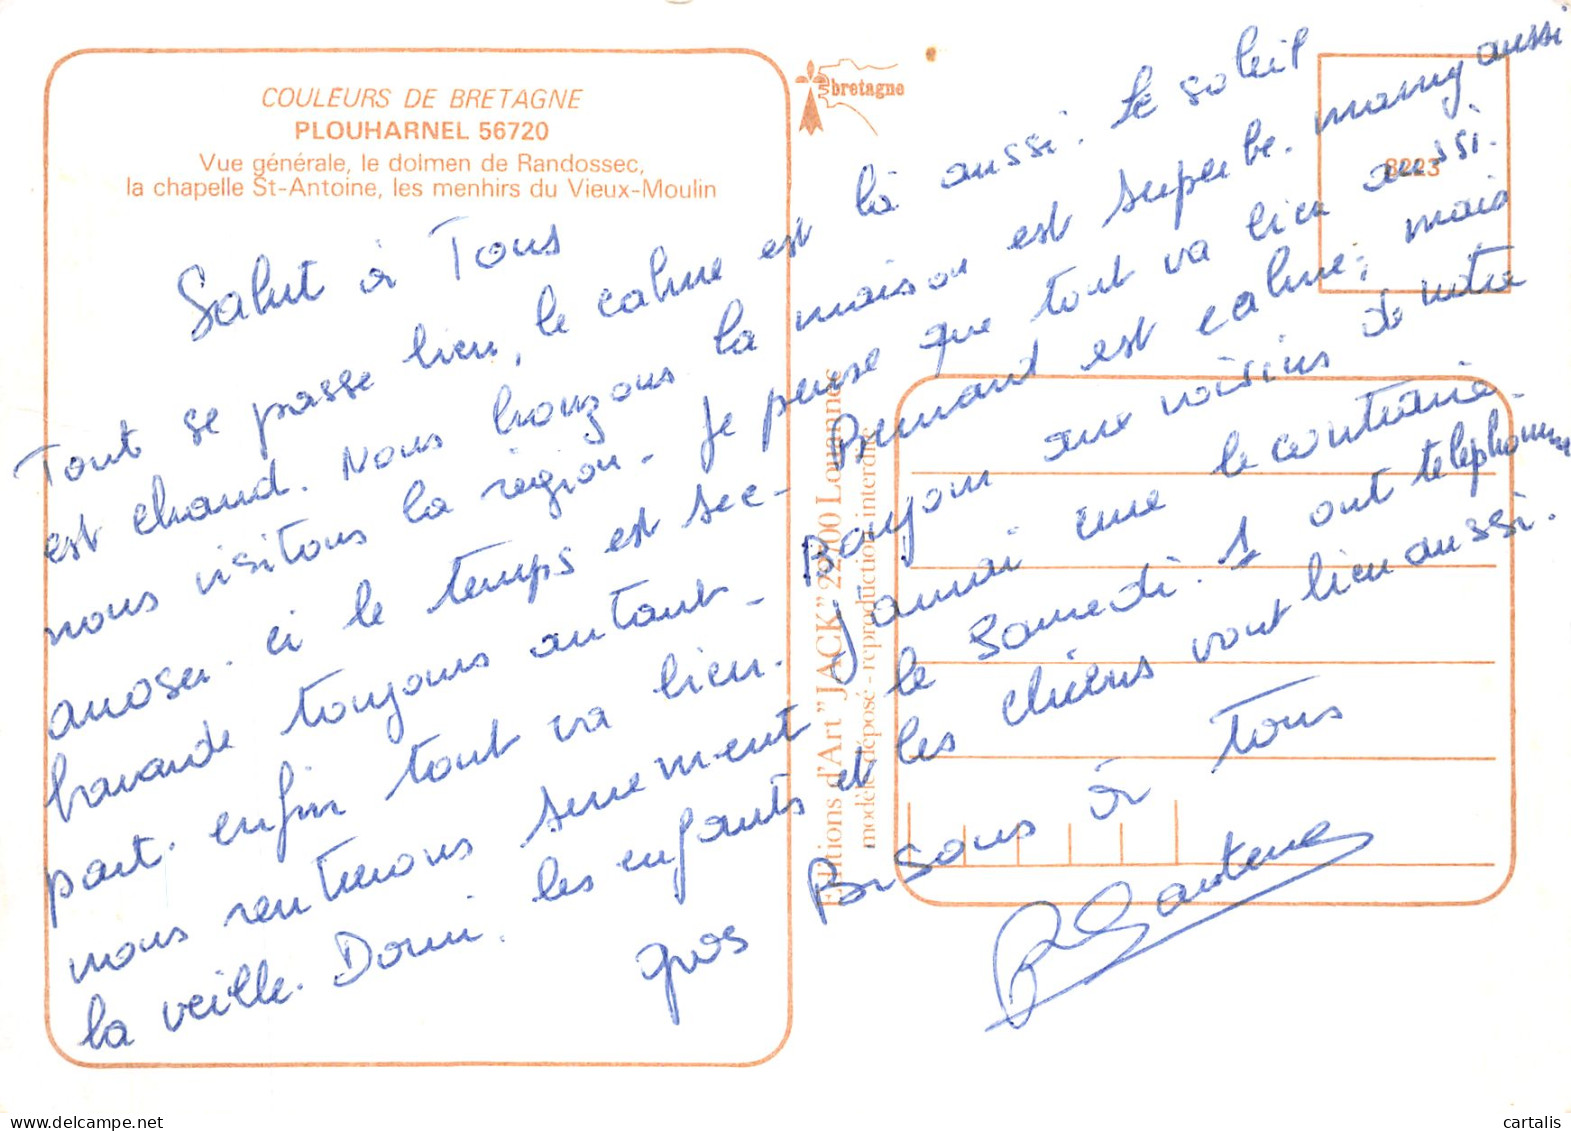 COULEURS DE BRETAGNE
PLOUHARNEL 56720
Vue générale, le dolmen de Randossec,
la chapelle St-Antoine, les menhirs du Vieux-Moulin
bretagne
8223
Editions d'Art "JACK" 22700 Louannec
modèle déposé - reproduction interdite
Salut à Tous
Tout se passe bien, le calme est là aussi. Le soleil
est chaud. Nous bronzons la maison est superbe. mamy aussi
nous visitons la région. Je pense que tout va bien aussi.
arroser. ci le temps est sec. Bernard est calme, mais
bavarde toujours autant. Bonjour aux voisins de notre
part. enfin tout va bien. J'amai une le contraire.
nous rentrerons surement le samedi. 1 ont téléphonne
la veille. Domi. les enfants et les chiens vont bien aussi.
gros Bisous à Tous